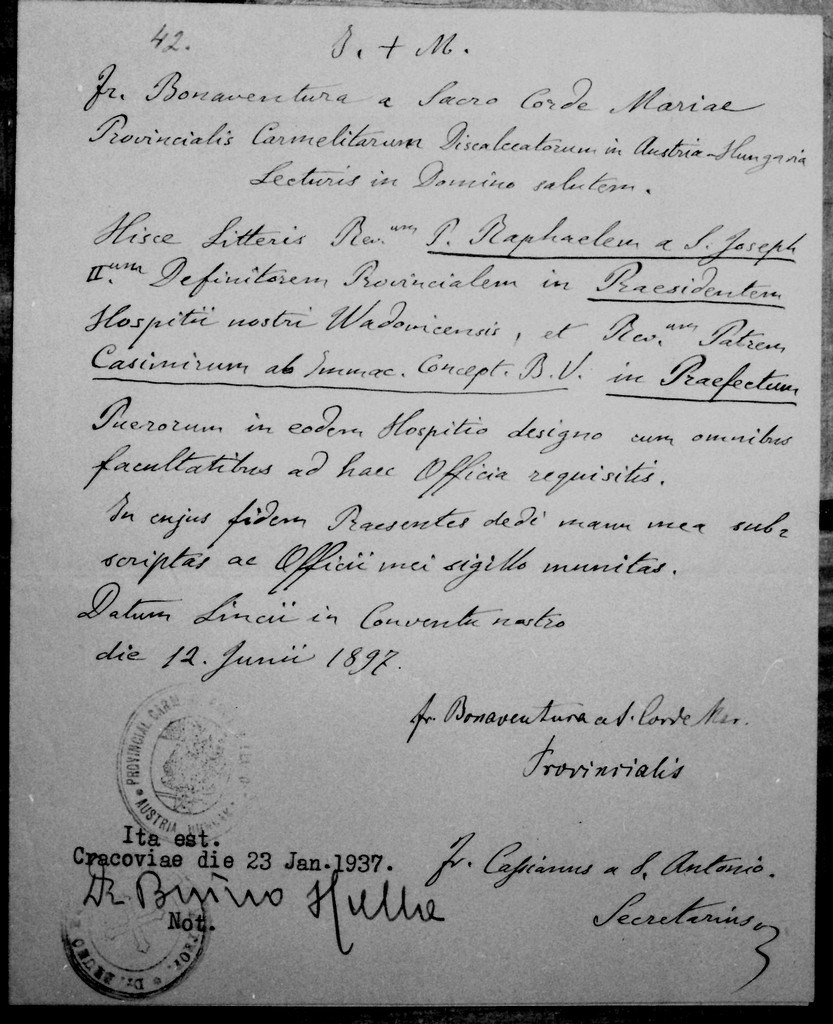 42. J. + M.
Fr. Bonaventura a Sacro Corde Mariae
Provincialis Carmelitarum Discalceatorum in Austria-Hungaria
Lecturis in Domino salutem.
Hisce Litteris Rev.um P. Raphaelem a S. Joseph
II.um Definitorem Provincialem in Praesidentem
Hospitii nostri Wadovicensis, et Rev.um Patrem
Casimirum ab Immac. Concept. B. V. in Praefectum
Puerorum in eodem Hospitio designo cum omnibus
facultatibus ad haec Officia requisitis.
In cujus fidem Praesentes dedi manu mea sub=
scriptas ac Officii mei sigillo munitas.
Datum Lincii in Conventu nostro
die 12. Junii 1897.
fr. Bonaventura a S. Corde Mar.
Provincialis
PROVINCIAL CARM
AUSTRIA HUNGAR
Ita est.
Cracoviae die 23 Jan.1937.
Dr Bruno
Not.
Fr. Cassianus a S. Antonio.
Secretarius
PROF. Dr. BRUNO